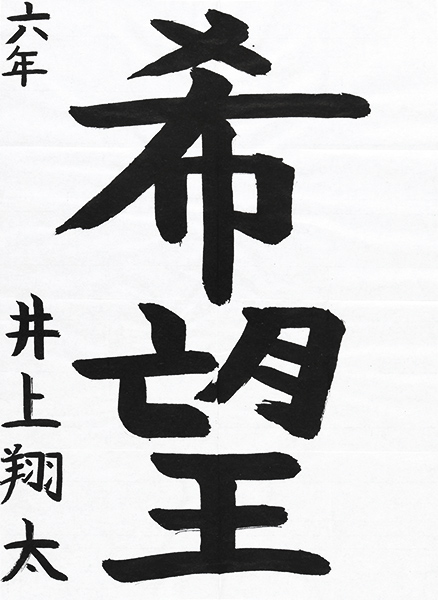 希望
六年 井上翔太